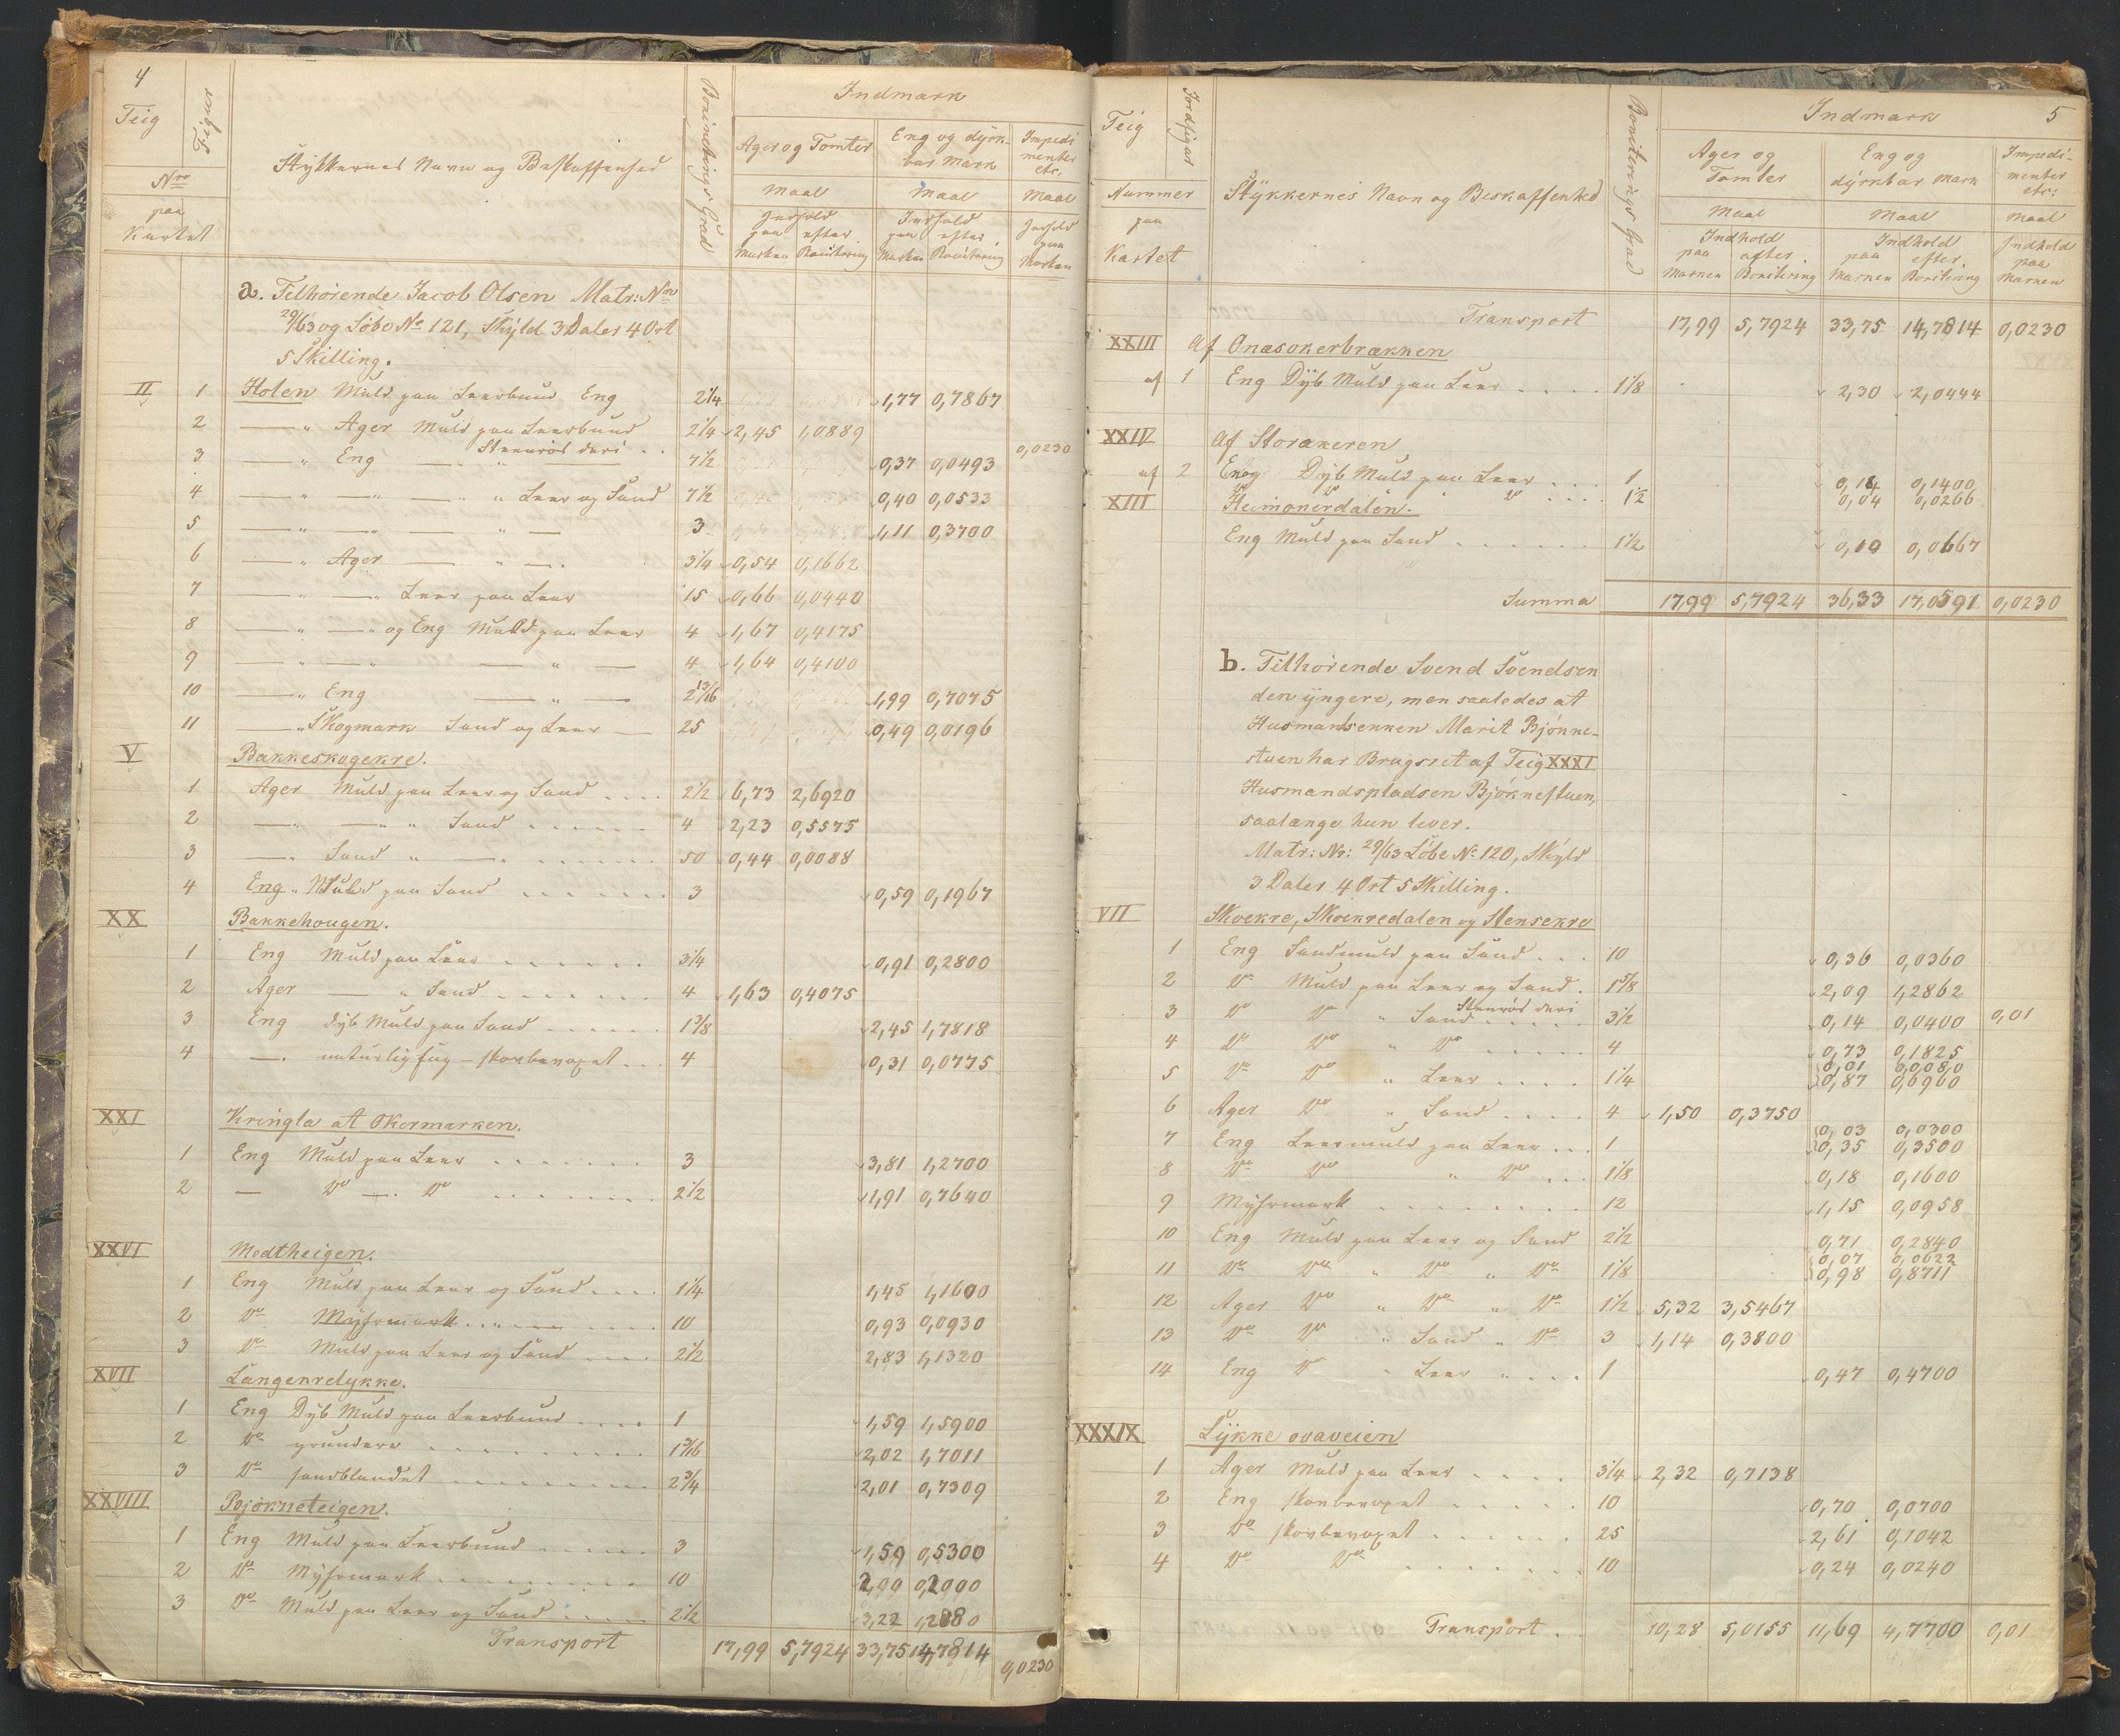 4
Teig
Figur
Stykkernes Navn og Beskaffenhed
Boniterings Grad
Indmark
Ager og Tomter
Eng og dyrk-
bar Mark
Impedi
menter
etc.
Nro
Maal
Maal
Maal
paa
Kartet
Indhold
paa efter
Marken Bonitering
Indhold
paa efter
Marken Bonitering
Indhold
paa
Marken
a. Tilhørende Jacob Olsen Matr: Nr
29/63 og Løbe No 121, Skyld 3 Daler 4 Ort
5 Skilling.
II 1 Holen Muld paa Leerbund Eng 2 1/4 1,77 0,7867
2 " Ager Muld paa Leerbund 2 1/4 2,45 1,0889
3 " Eng — " Steenrös deri 7 1/2 0,37 0,0493 0,0230
4 — " — " — " Leer og Sand 7 1/2 0,40 0,0533
5 — " — " — " — 3 1,11 0,3700
6 — " Ager — " — 3 1/4 0,54 0,1662
7 — " — " Leer paa Leer 15 0,66 0,0440
8 — " — " og Eng Muld paa Leer 4 1,67 0,4175
9 — " — " — " — 4 1,64 0,4100
10 — " Eng — " — 2 13/16 1,99 0,7075
11 — " Skogmark Sand og Leer — 25 0,49 0,0196
V Bakkeskogekre.
1 Ager Muld paa Leer og Sand 2 1/2 6,73 2,6920
2 — " — " " Sand 4 2,23 0,5575
3 — " Sand " — " 50 0,44 0,0088
4 Eng " Muld paa Sand 3 0,59 0,1967
XX Bakkehougen.
1 Eng Muld paa Leer 3 1/4 0,91 0,2800
2 Ager — " Sand 4 1,63 0,4075
3 Eng dyb Muld paa Sand 1 3/8 2,45 1,7818
4 — . naturlig Eng - skovbevoxet 4 0,31 0,0775
XXI Kringla at Okermarken.
1 Eng Muld paa Leer 3 3,81 1,2700
2 — Do — . Do 2 1/2 1,91 0,7640
XXVI Medtheigen.
1 Eng Muld paa Leer og Sand 1 1/4 1,45 1,1600
2 Do Myhrmark 10 0,93 0,0930
3 Do Muld paa Leer og Sand 2 1/2 2,83 1,1320
XVII Langenrelykke.
1 Eng Dyb Muld paa Leerbund 1 1,59 1,5900
2 Do grundere 1 3/16 2,02 1,7011
3 Do sandblandet 2 3/4 2,01 0,7309
XXVIII Bjørkneteigen.
1 Eng Muld paa Leerbund 3 1,59 0,5300
2 Do Myhrmark 10 2,90 0,2900
3 Do Muld paa Leer og Sand 2 1/2 3,22 1,2880
Transport 17,99 5,7924 33,75 14,7814 0,0230
5
Teig
Jordfigur
Stykkernes Navn og Beskaffenhed
Boniterings Grad
Indmark
Ager og
Tomter
Eng og
dyrkbar Mark
Impedi-
menter
etc:
Nummer
Maal
Maal
Maal
paa
Kartet
Indhold
paa efter
Marken Bonitering
Indhold
paa efter
Marken Bonitering
Indhold
paa
Marken
Transport 17,99 5,7924 33,75 14,7814 0,0230
XXIII Af Onæsokerbrækken
af 1 Eng Dyb Muld paa Leer 1 1/8 2,30 2,0444
XXIV Af Storakeren
af 2 Eng Dyb Muld paa Leer 1 0,14 0,1400
Do Do Do 1 1/2 0,04 0,0266
XIII Heimonerdalen.
Eng Muld paa Sand 1 1/2 0,10 0,0667
Summa 17,99 5,7924 36,33 17,0591 0,0230
b. Tilhørende Svend Svendsen
den yngere, men saaledes at
Husmandsenken Marit Bjønne-
stuen har Brugsret af Teig XXXI
Husmandspladsen Bjørknestuen,
saalænge hun lever.
Matr: Nr: 29/63 Løbe No 120, Skyld
3 Daler 4 Ort 5 Skilling.
VII Skoekre, Skoekredalen og Stensekre
1 Eng Sandmuld paa Sand 10 0,36 0,0360
2 Do Muld paa Leer og Sand 1 5/8 2,09 1,2862
3 Do Do " Sand Steenrös deri 3 1/2 0,14 0,0400 0,01
4 Do Do " Do 4 0,73 0,1825
5 Do Do " Leer 1 1/4 0,01 0,0080
0,87 0,6960
6 Ager Do " Sand 4 1,50 0,3750
7 Eng Leermuld paa Leer 1 0,03 0,0300
0,35 0,3500
8 Do Do " Do 1 1/8 0,18 0,1600
9 Myhrmark 12 1,15 0,0958
10 Eng Muld paa Leer og Sand 2 1/2 0,71 0,2840
11 Do Do " Do " Do 1 1/8 0,07 0,0622
0,98 0,8711
12 Ager Do " Do " Do 1 1/2 5,32 3,5467
13 Do Do " Sand " Do 3 1,14 0,3800
14 Eng Do " Leer " 1 0,47 0,4700
XXXIX Lykke ovaveien
1 Ager Muld paa Leer 3 1/4 2,32 0,7138
2 Eng skovbevoxet 10 0,70 0,0700
3 Do skovbevoxet 25 2,61 0,1042
4 Do Do 10 0,24 0,0240
Transport 10,28 5,0155 11,69 4,7700 0,01